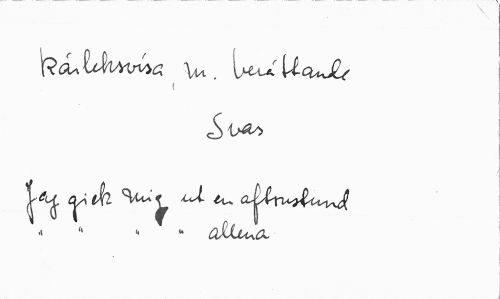 kärleksvisa, m. berättande
Svar
Jag gick mig ut en aftonstund
" " " " allena